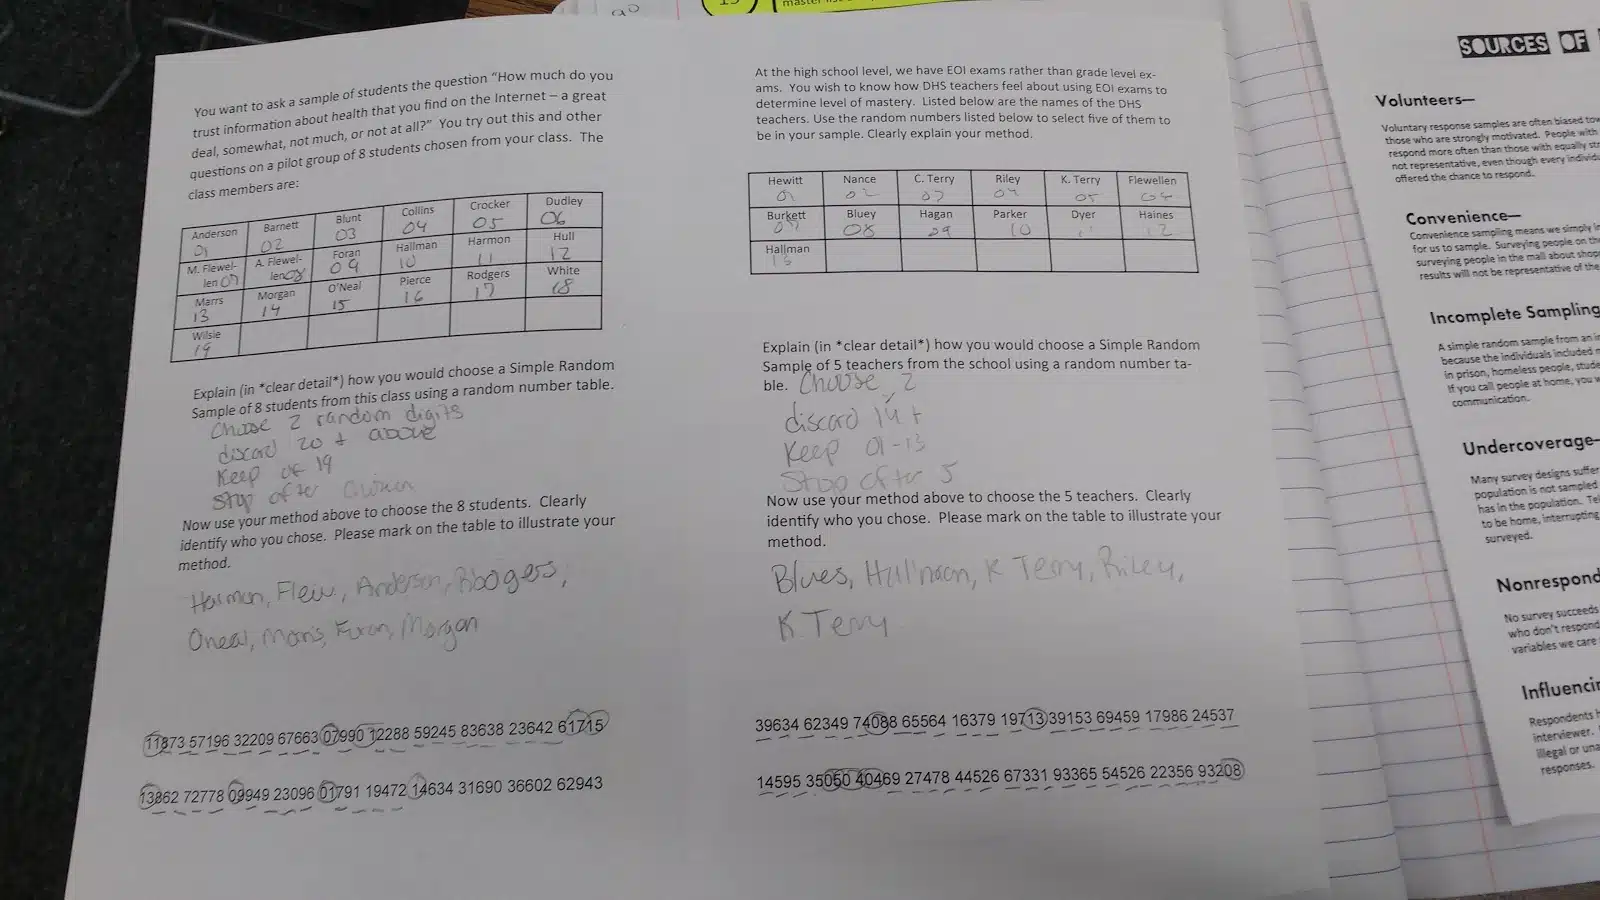 master list
You want to ask a sample of students the question "How much do you
trust information about health that you find on the Internet – a great
deal, somewhat, not much, or not at all?" You try out this and other
questions on a pilot group of 8 students chosen from your class. The
class members are:
Anderson Barnett Blunt Collins Crocker Dudley
01 02 03 04 05 06
M. Flewel-len 07 A. Flewel-len 08 Foran 09 Hallman 10 Harmon 11 Hull 12
Marrs Morgan O'Neal Pierce Rodgers White
13 14 15 16 17 18
Wilsie
19
Explain (in *clear detail*) how you would choose a Simple Random
Sample of 8 students from this class using a random number table.
Choose 2 random digits
discard 20 + above
Keep 19
Stop after
Now use your method above to choose the 8 students. Clearly
identify who you chose. Please mark on the table to illustrate your
method.
Harmon, Flew, Anderson,
Oneal, Morgan
11873 57196 32209 67663 07990 12288 59245 83638 23642 61715
13862 72778 09949 23096 01791 19472 14634 31690 36602 62943
At the high school level, we have EOI exams rather than grade level ex-
ams. You wish to know how DHS teachers feel about using EOI exams to
determine level of mastery. Listed below are the names of the DHS
teachers. Use the random numbers listed below to select five of them to
be in your sample. Clearly explain your method.
Hewitt Nance C. Terry Riley K. Terry Flewellen
01 02 05
Burkett Bluey Hagan Parker Dyer Haines
08 09 10 12
Hallman
13
Explain (in *clear detail*) how you would choose a Simple Random
Sample of 5 teachers from the school using a random number ta-
ble. Choose 2
discard 14 +
Keep 01-13
Stop after 5
Now use your method above to choose the 5 teachers. Clearly
identify who you chose. Please mark on the table to illustrate your
method.
K Terry, Riley,
K. Terry
39634 62349 74088 65564 16379 19713 39153 69459 17986 24537
14595 35050 40469 27478 44526 67331 93365 54526 22356 93208
SOURCES OF
Volunteers—
Voluntary response samples are often biased
those who are strongly motivated. People with
respond more often than those with equally
not representative, even though every
offered the chance to respond.
Convenience—
Convenience sampling means we simply
for us to sample. Surveying people on
surveying people in the mall about
results will not be representative of the
Incomplete Sampling
A simple random sample from an
because the individuals included
in prison, homeless people,
If you call people at home, you
communication.
Undercoverage—
Many survey designs suffer
population is not sampled
has in the population.
to be home, interrupting
surveyed.
Nonrespond
No survey succeeds
who don't respond
variables we care
Influencin
Respondents
interviewer.
illegal or
responses.